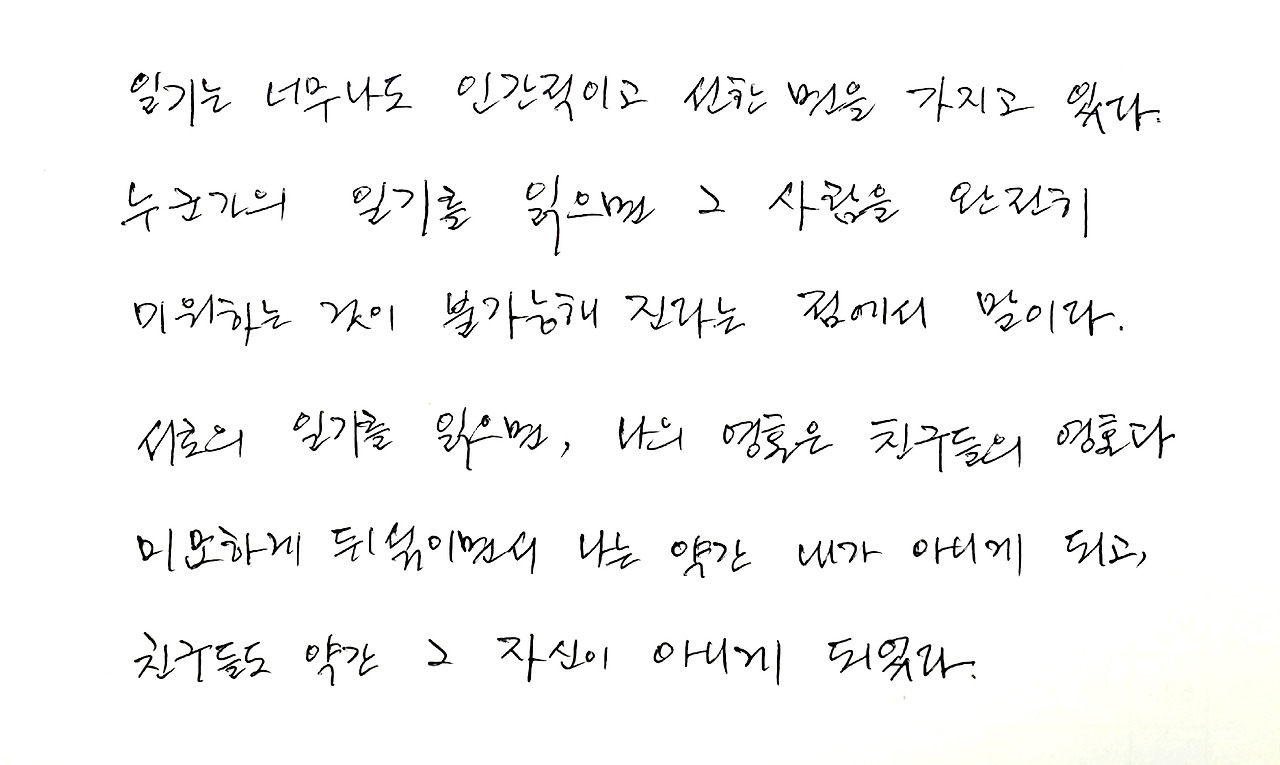 일기는 너무나도 인간적이고 선한 면을 가지고 있다.
누군가의 일기를 읽으면 그 사람을 완전히
미워하는 것이 불가능해 진다는 점에서 말이다.
서로의 일기를 읽으면, 나의 영혼은 친구들의 영혼과
미묘하게 뒤섞이면서 나는 약간 내가 아니게 되고,
친구들도 약간 그 자신이 아니게 되었다.